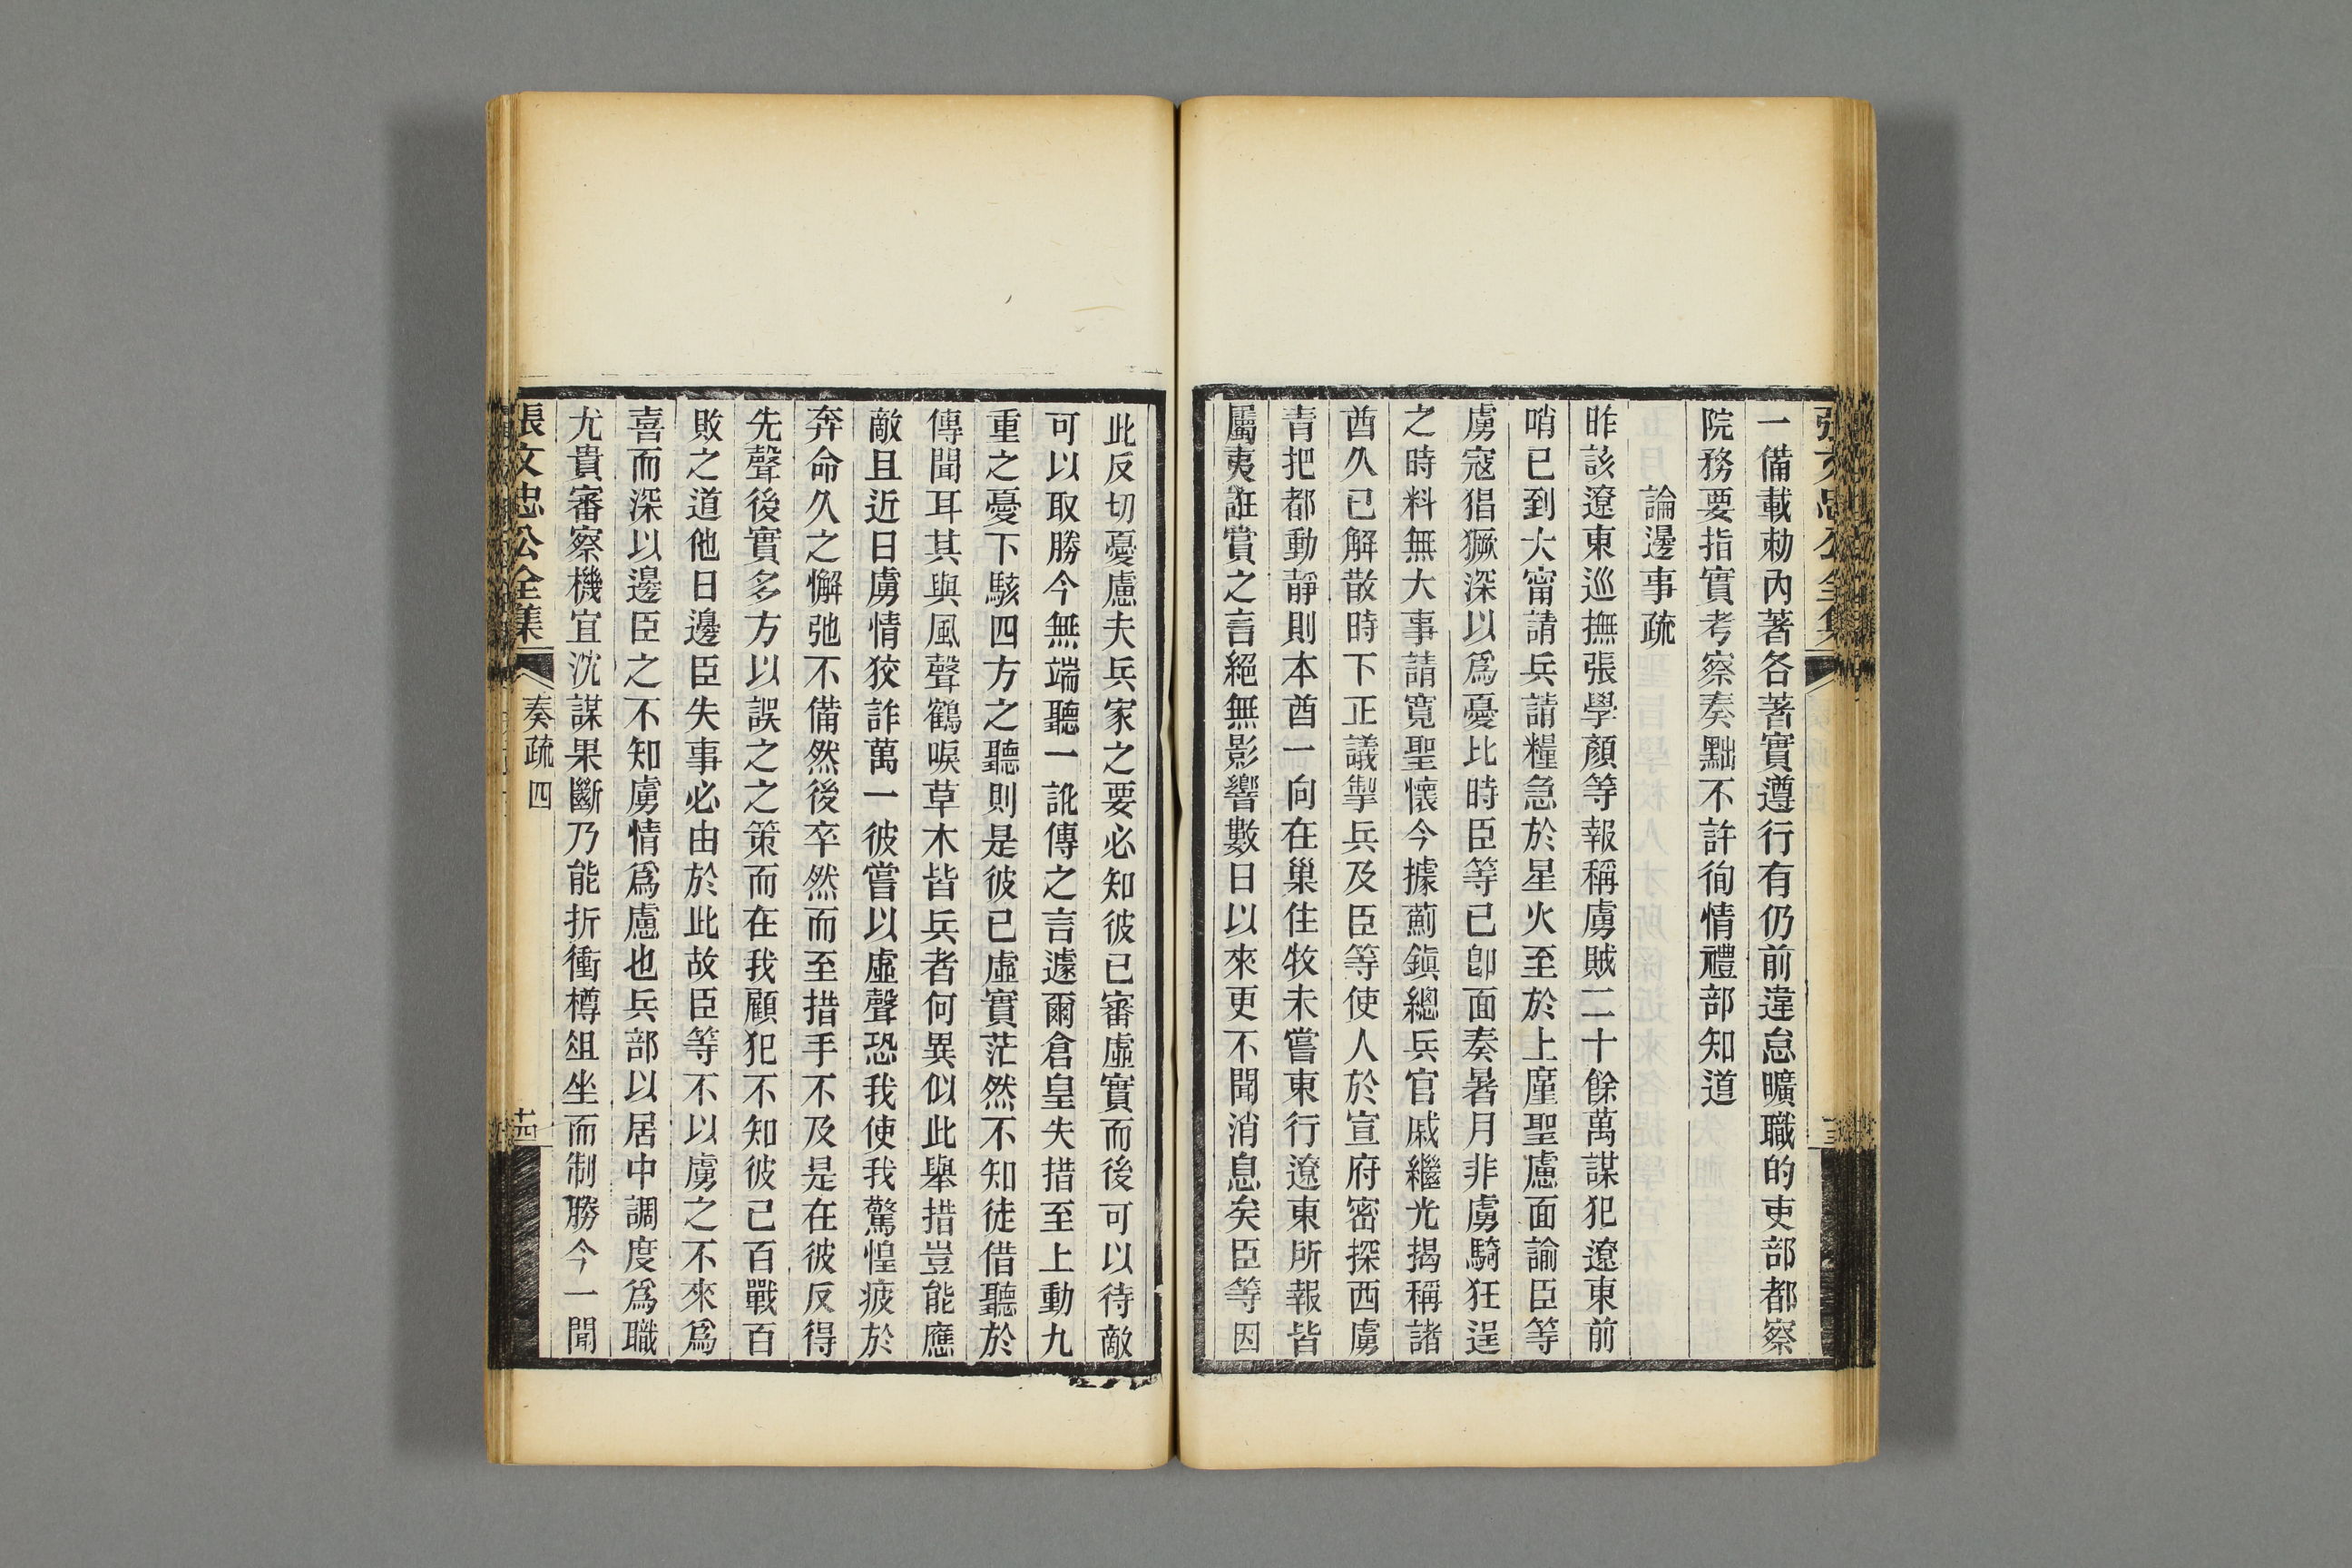 一備載勅內著各著實遵行有仍前違怠曠職的吏部都察
院務要指實考察奏黜不許徇情禮部知道
論邊事疏
昨該遼東巡撫張學顏等報稱虜賊二十餘萬謀犯遼東前
哨已到大甯請兵請糧急於星火至於上廑聖慮面諭臣等
虜寇猖獗深以爲憂比時臣等已卽面奏暑月非虜騎狂逞
之時料無大事請寬聖懷今據薊鎭總兵官戚繼光揭稱諸
酋久已解散時下正議掣兵及臣等使人於宣府密探西虜
青把都動靜則本酋一向在巢住牧未嘗東行遼東所報皆
屬夷誑賞之言絕無影響數日以來更不聞消息矣臣等因
此反切憂慮夫兵家之要必知彼己審虛實而後可以待敵
可以取勝今無端聽一訛傳之言遽爾倉皇失措至上動九
重之憂下駭四方之聽則是彼己虛實茫然不知徒借聽於
傳聞耳其與風聲鶴唳草木皆兵者何異似此舉措豈能應
敵且近日虜情狡詐萬一彼嘗以虛聲恐我使我驚惶疲於
奔命久之懈弛不備然後卒然而至措手不及是在彼反得
先聲後實多方以誤之之策而在我顧犯不知彼己百戰百
敗之道他日邊臣失事必由於此故臣等不以虜之不來爲
喜而深以邊臣之不知虜情爲慮也兵部以居中調度爲職
尤貴審察機宜沈謀果斷乃能折衝樽俎坐而制勝今一聞
張文忠公全集
奏疏四
十四